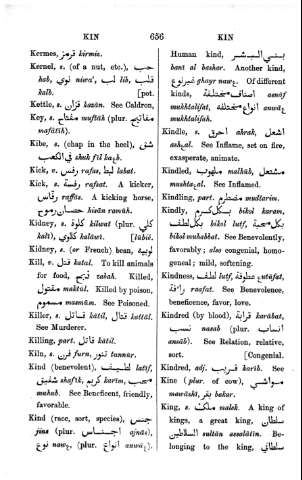 KIN 656 KIN
Kermes, قرمز kirmiz.
Kernel, s. (of a nut, etc.), حب
hab, نوي niwa', لب lib, قلب
kalb. [pot.
Kettle, s. قزان kazân. See Caldron,
Key, s. مفتاح muftâh (plur. مفاتيح
mafâtîh).
Kibe, s. (chap in the heel), شق
في الكعب shak fîl kaab.
Kick, v. رفس rafas, لبط labat.
Kick, s. رفسة rafsat. A kicker,
رفاس raffâs. A kicking horse,
حصان رموح hisân ramûh.
Kidney, s. كلوة kilwat (plur. كلي
kali), كلاوي kalâwi. [lúbié.
Kidney, s. (or French) bean, لوبية
Kill, v. قتل katal. To kill animals
for food, ذبح zabah. Killed,
مقتول maktûl. Killed by poison,
مسموم masmûm. See Poisoned.
Killer, s. قاتل kâtil, قتال kattâl.
See Murderer.
Killing, part. قاتل kâtil.
Kiln, s. فرن furn, تنور tannur.
Kind (benevolent), لطيف latîf,
شفيق shafîk, كريم karîm, محب
muhab. See Beneficent, friendly,
favorable.
Kind (race, sort, species), جنس
jins (plur. اجناس ajnâs),
نوع naw, (plur. انواع anwâ).
Human kind, بني البشر
banî al bashar. Another kind,
غير نوع ghayr naw. Of different
kinds, اصناف مختلفة asnâf
mukhtalifat, انواع مختلفة anwâ
mukhtalifah.
Kindle, s. احرق ahrak, اشعل
ashal. See Inflame, set on fire,
exasperate, animate.
Kindled, ملهوب malhûb, مشتعل
mushtaal. See Inflamed.
Kindling, part. مضطرم mudtarim.
Kindly, بكل كرم bikol karam,
بكل لطف bikol lutf, بكل محبة
bikol muhabbat. See Benevolently,
favorably; also congenial, homo-
geneal; mild, softening.
Kindness, لطف lutf, عطوفة utûfat,
رافة raafat. See Benevolence,
beneficence, favor, love.
Kindred (by blood), قرابة karâbat,
نسب nasab (plur. انساب
ansâb). See Relation, relative,
sort. [Congenial.
Kindred, adj. قريب karîb. See
Kine (plur. of cow), مواشي
mawâshi, بقر bakar.
King, s. ملك malek. A king of
kings, a great king, سلطان
السلاطين sultân assalâtîn. Be-
longing to the king, سلطاني